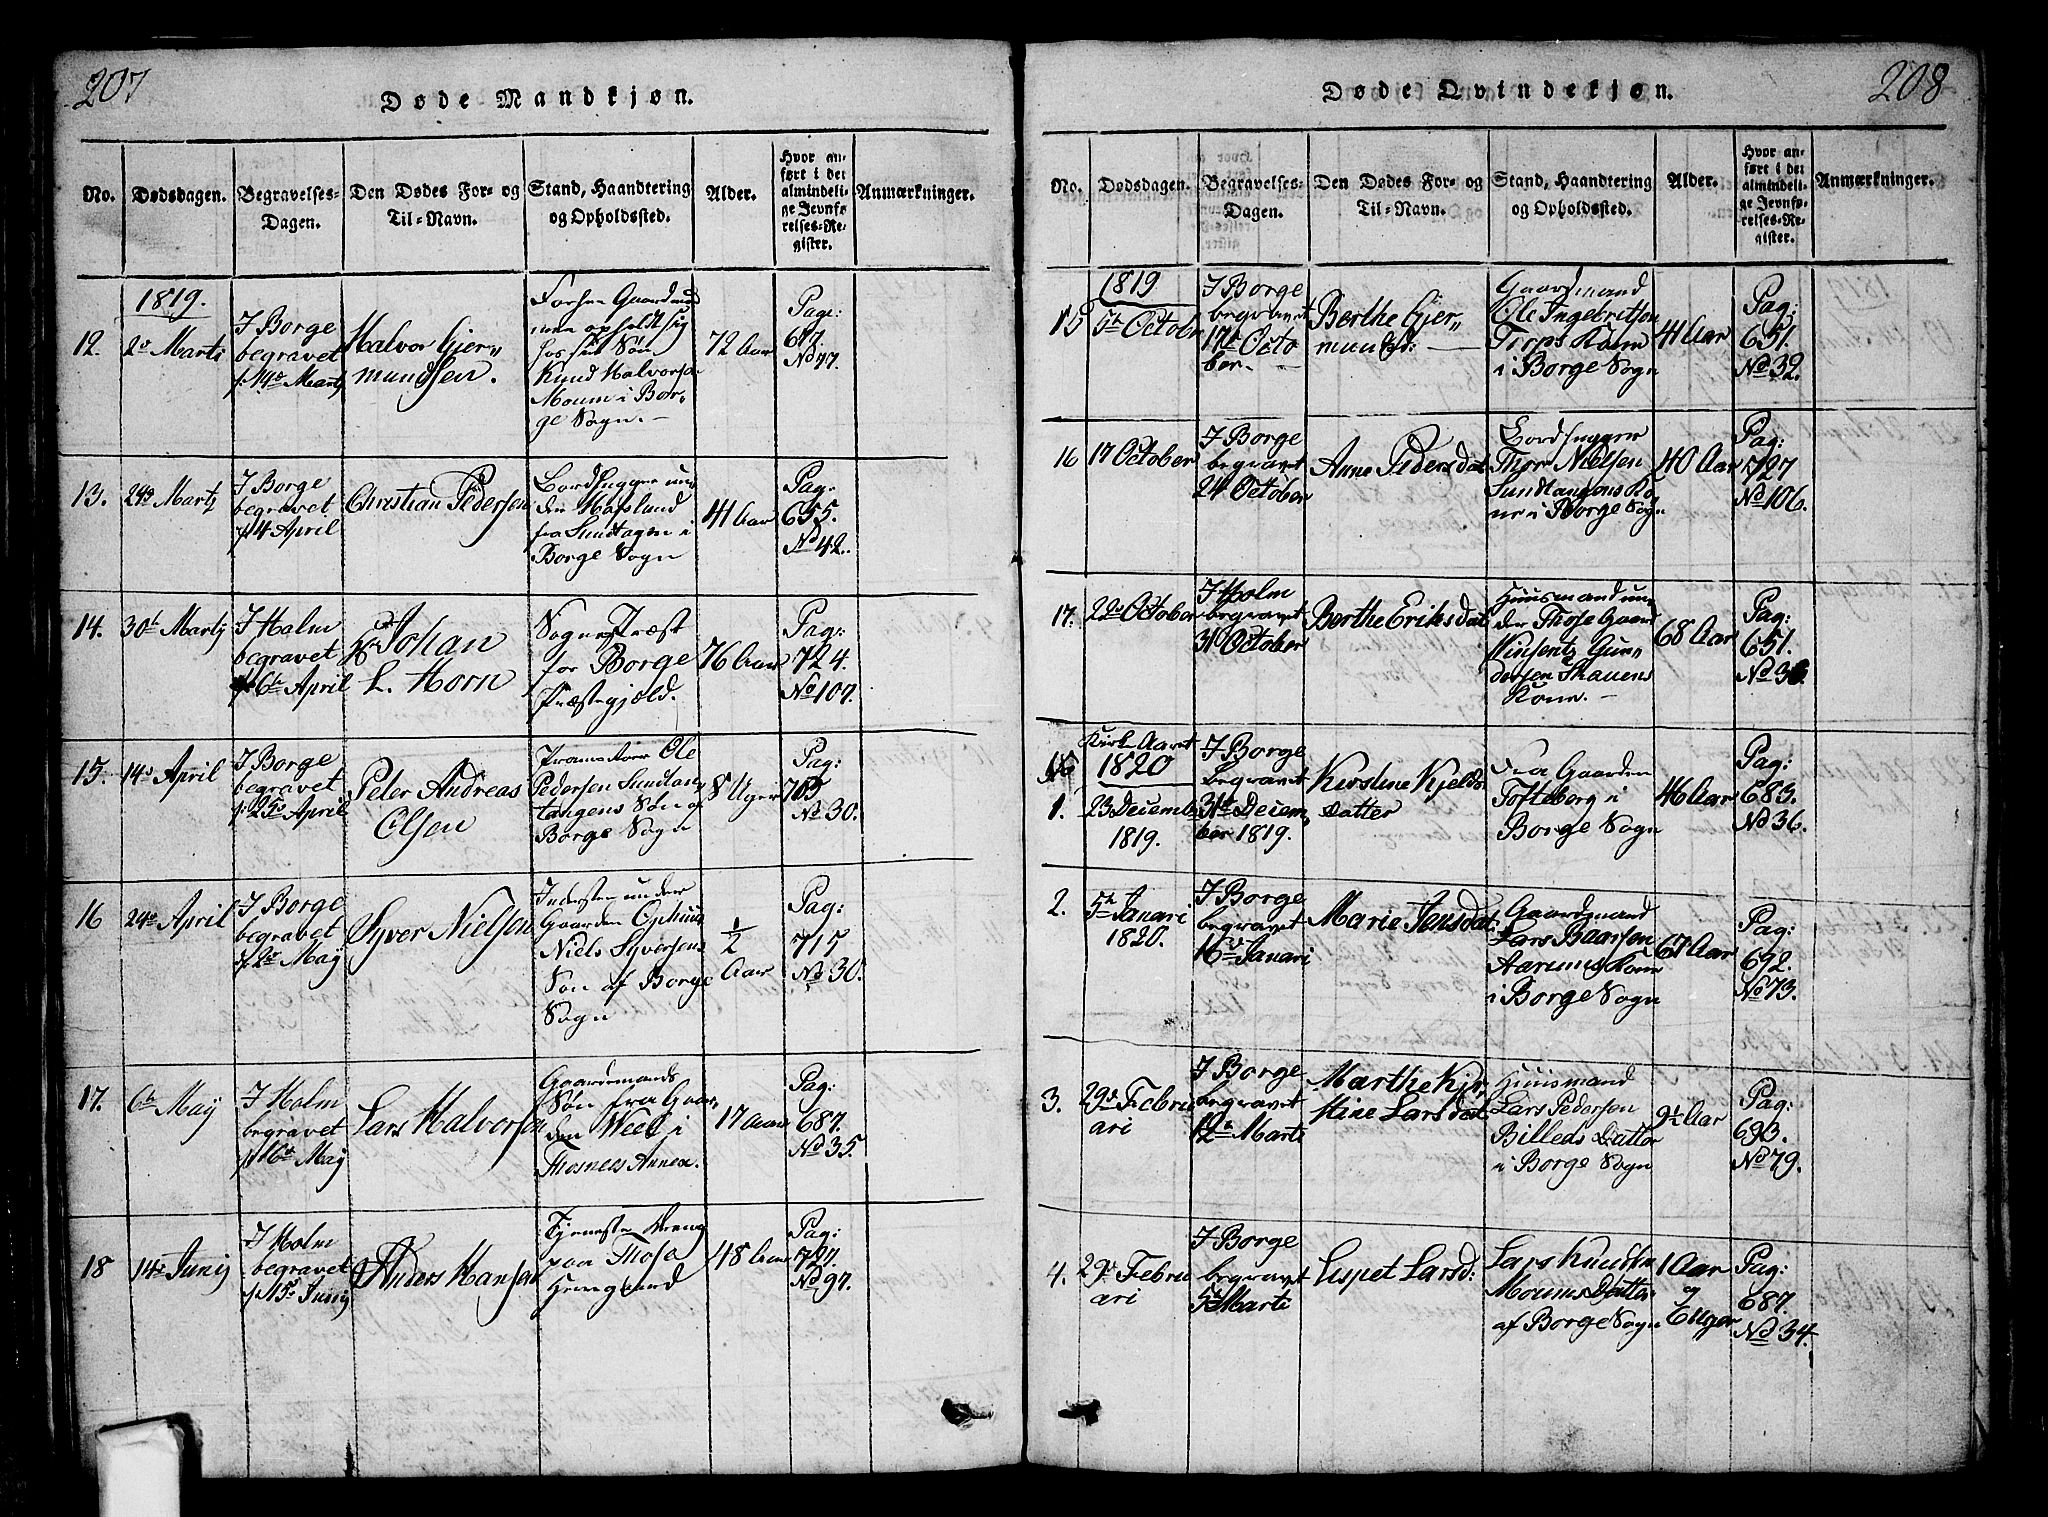 207
Døde Mandkjøn.
No.
Dødsdagen.
Begravelses-
Dagen.
Den Dødes For- og
Til-Navn.
Stand, Haandtering
og Opholdssted.
Alder.
Hvor an-
ført i det
almindeli-
ge Jevnfø-
relses-Re-
gister.
Anmærkninger.
1819.
12.
2de Marti
I Borge
begravet
14de Marti
Halvor Gjer„
mundsen.
Gaardmand
opholdt sig
hos sin Søn
Knud Halvorsen
Moum i Bor„
ge Sogn.
72 Aar
Pag:
617.
No 47.
13.
24de Marti
I Borge
begravet
4 April
Christian Pedersen
Bordhugger un„
der Hafslund
fra Sundtagen i
Borge Sogn
41 Aar
Pag:
655.
No 42.
14.
30te Martij
I Holm
begravet
6te April
Hr Johan
L. Horn
Sogne Præst
for Borge
Præstegjeld.
76 Aar
Pag:
724.
No 107.
15.
14de April
I Borge
begravet
25de April
Peter Andreas
Olsen
Ole
Pedersen Sundtan„
tangens Søn af
Borge Sogn
8 Uger
Pag:
705
No 30.
16
24de April
I Borge
begravet
2de May
Syver Nielsen
Inderste under
Gaarden Ophuus
Niels Syversens
Søn af Borge
Sogn
½
Aar
Pag:
715
No 30.
17.
6te May
I Holm
begravet
16de May
Lars Halvorsen
Gaardmands
Søn fra Gaar„
den Weel i
Thosnes Annex.
17 Aar
Pag:
687.
No 35.
18
14de Junij
I Holm
begravet
15de Junij
Anders Hansen
Tjeneste Dreng
paa Those
Herregaard
48 Aar
Pag:
727.
No 97.
208
Døde Qvindekjøn.
No.
Dødsdagen.
Begravelses-
Dagen.
Den Dødes For- og
Til-Navn.
Stand, Haandtering
og Opholdssted.
Alder.
Hvor an-
ført i det
almindeli-
ge Jevnfø-
relses-Re-
gister.
Anmærkninger.
1819
15
5te Octobr
I Borge
begravet
17de Octo
ber.
Berthe Gjer„
mundsd:
Gaardmand
Ole Ingebritsen
Torps Kone
i Borge Sogn
41 Aar
Pag:
651.
No 32.
16
17 October
I Borge
begravet
24 October
Anne Pedersdat
Bordhugger
Thor Nielsen
Sundtangens Ko
ne i Borge Sogn
40 Aar
Pag:
727
No 106.
17.
22de October
I Holm
begravet
31 October
Berthe Eriksdat
Huusmand un„
der Those Gaard
Vinsents Gun„
dersen Skauens
Kone.
68 Aar
Pag:
651.
Kirke Aaret
1820
1.
23 Decembr
1819.
I Borge
begravet
31te Decem„
ber 1819.
Kirstene Kjelds
Datter
Fra Gaarden
Tofteberg i
Borge Sogn
46 Aar
Pag:
683.
No 36.
2.
5te Janari
1820.
I Borge
begravet
16de Janari
Marie Jensdat:
Gaardmand
Lars Baarsen
Aarums Kone
i Borge Sogn
67 Aar
Pag:
692.
No 73.
3.
29de Febru
ari
I Borge
begravet
12te Marti
Marthe Kir„
stine Larsdat
Huusmand
Lars Pedersen
Billeds Datter
i Borge Sogn
9½ Aar
Pag:
693.
No 79.
4.
29de Febru
ari
I Borge
begravet
5te Marti
Lispet Larsd:
Lars Knudsen
Moums Datter
af Borge Sogn
1 Aar
og
6 Uger
Pag:
687.
No 34.